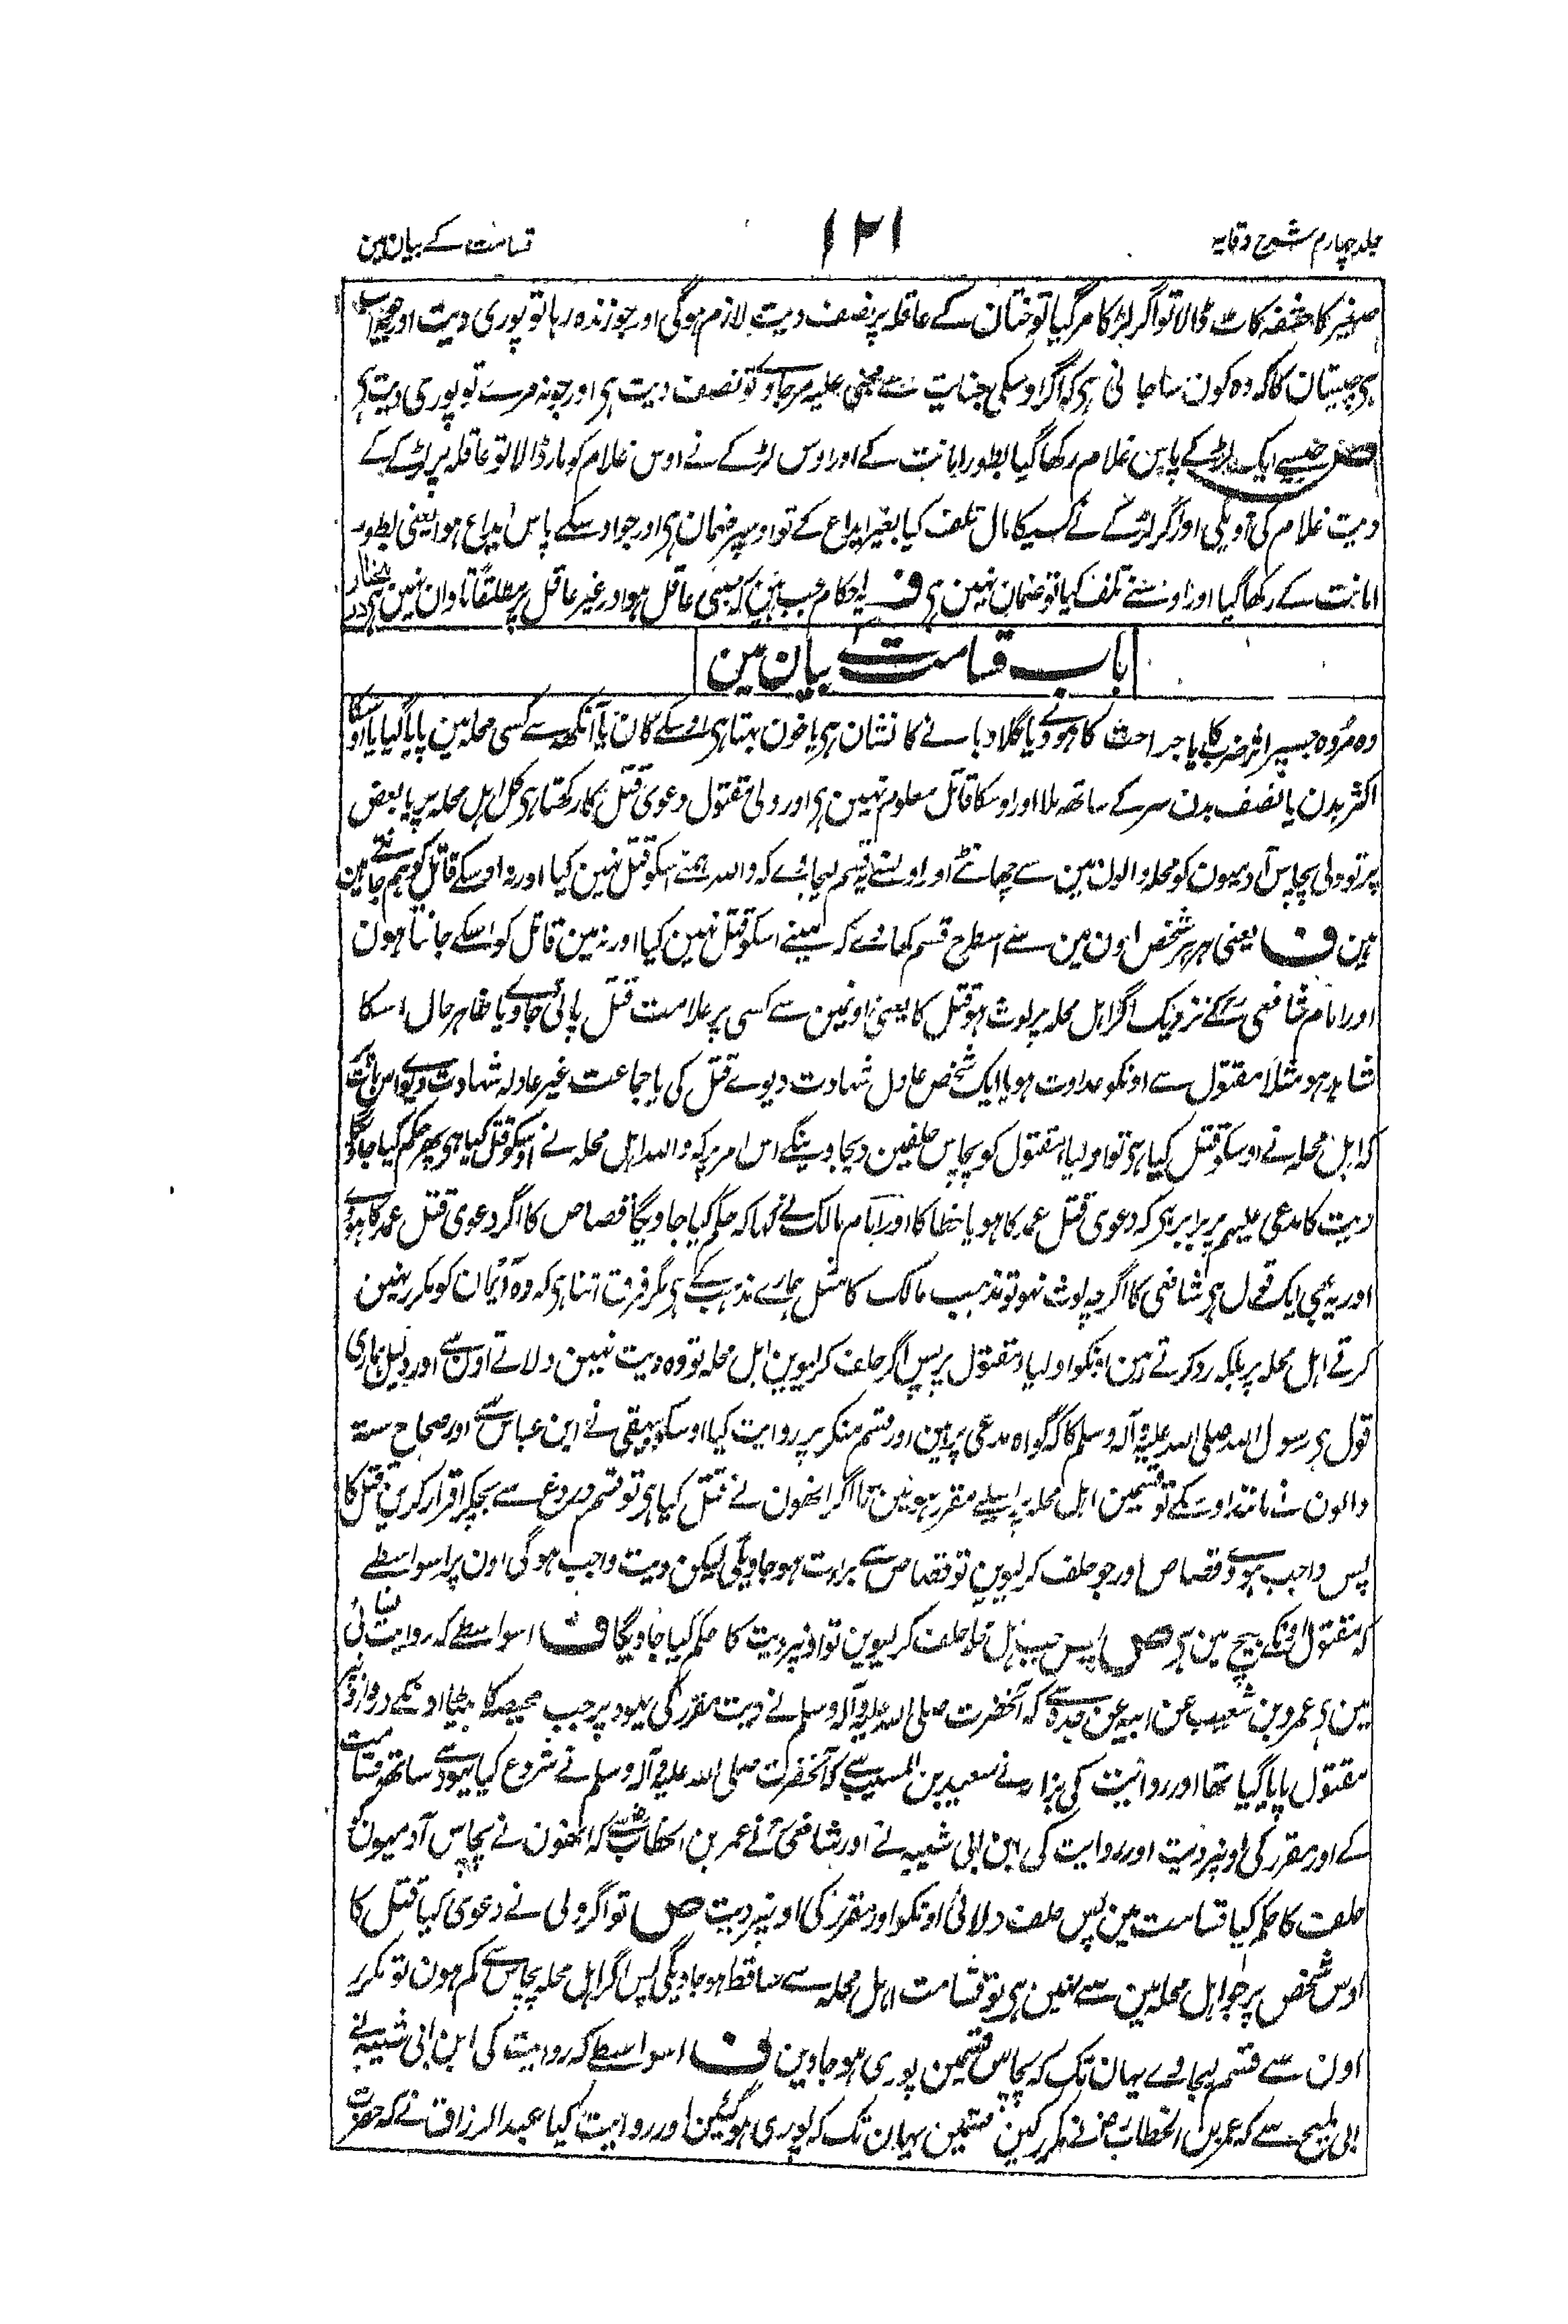 جلد چہارم شرح وقایہ
۱۲۱
قسامت کے بیان مین
صغیر کا حشفہ کاٹ ڈالا تو اگر لڑکا مر گیا تو ختان کے عاقلہ پر نصف دیت لازم ہوگی اور جو زندہ رہا تو پوری دیت اور جواب
ہی چیستان کا کہ وہ کون سا جانی ہی کہ اگر اوسکی جنایت سے مجنی علیہ مرجاوے تو نصف دیت ہی اور جو نہ مرے تو پوری دیت ہی
جیسے ایک لڑکے کے پاس غلام رکھا گیا بطور امانت کے اور اوس لڑکے نے اوس غلام کو مار ڈالا تو عاقلہ پر لڑکے کے
دیت غلام کی آویگی اور اگر لڑکے نے کسیکا مال تلف کیا بغیر ایداع کے تو اوسپر ضمان ہی اور جو اوسکے پاس ایداع ہوا یعنی بطور
امانت کے رکھا گیا اور اوسنے تلف کیا تو ضمان نہین ہی ف یہ احکام جب ہین کہ صبی عاقل ہو اور غیر عاقل پر مطلقًا تاوان نہین ہی در مختار
باب قسامت بیان مین
وہ مُردہ جسپر اثر ضرب کا یا جراحت کا ہووے یا گلا دبانے کا نشان ہی یا خون بہتا ہی اوسکے کان یا آنکھ سے کسی محلہ مین پایا گیا یا اوسکا
اکثر بدن یا نصف بدن سر کے ساتھ ملا اور اوسکا قاتل معلوم نہین ہی اور ولی مقتول دعوی قتل کا رکھتا ہی کل اہل محلہ پر یا بعض
پر تو ولی پچاس آدمیون کو محلہ والون مین سے چھانٹے اور اونسے یہ قسم لیجاوے کہ واللہ ہمنے اسکو قتل نہین کیا اور نہ اوسکے قاتل کو ہم جانتے ہین
ہین ف یعنی ہر ہر شخص اون مین سے اسطرح قسم کھاوے کہ مینے اسکو قتل نہین کیا اور نہ مین قاتل کو اسکے جانتا ہون
اور امام شافعی کے نزدیک اگر اہل محلہ پر لوث ہو قتل کا یعنی اونمین سے کسی پر علامت قتل پائی جاوے یا ظاہر حال اسکا
شاہد ہو مثلاً مقتول سے اونکو عداوت ہو یا ایک شخص عادل شہادت دیوے قتل کی یا جماعت غیر عادلہ شہادت دیوے اس بات کی
کہ اہل محلہ نے اوسکو قتل کیا ہی تو اولیاء مقتول کو پچاس حلفین دیجاوینگے اس امر پر کہ واللہ اہل محلہ نے اوسکو قتل کیا ہی پھر حکم کیا جاویگا
دیت کا مدعی علیہم پر برابر ہی کہ دعوی قتل عمد کا ہو یا خطا کا اور امام مالک نے کہا کہ حکم کیا جاویگا قصاص کا اگر دعوی قتل عمد کا ہووے
اور یہ بھی ایک قول ہی شافعی کا اگرچہ لوث نہو تو مذہب مالک کا مثل ہمارے مذہب کے ہی مگر فرق اتنا ہی کہ وہ ایمان کو مکرر نہین
کرتے اہل محلہ پر بلکہ رد کرتے ہین اونکو اولیاء مقتول پر پس اگر حلف کرلیوین اہل محلہ تو وہ دیت نہین دلاتے اون سے اور دلیل ہماری
قول ہی رسول اللہ صلی اللہ علیہ وآلہ وسلم کا کہ گواہ مدعی پر ہین اور قسم منکر پر روایت کیا اوسکو بیہقی نے ابن عباس سے اور صحاح ستہ
والون نے مانند اوسکے تو قسمین اہل محلہ پر اسلیے مقرر ہوئین تا اگر انھون نے قتل کیا ہی تو قسم دروغ سے بچکر اقرار کرین قتل کا
پس واجب ہووے قصاص اور جو حلف کرلیوین تو قصاص سے براءت ہو جاویگی لیکن دیت واجب ہوگی اون پر اسواسطے
کہ مقتول اونکے بیچ مین ہی ص پس جب اہل محلہ حلف کرلیوین تو اونپر دیت کا حکم کیا جاویگا ف اسواسطے کہ روایت
مین ہی عمرو بن شعیب عن ابیہ عن جدہ سے کہ آنحضرت صلی اللہ علیہ وآلہ وسلم نے دیت مقرر کی یہود پر جب محیصہ کا بیٹا اونکے دروازونپر
مقتول پایا گیا تھا اور روایت کی بزار نے سعید بن المسیب سے کہ آنحضرت صلی اللہ علیہ وآلہ وسلم نے شروع کیا یہود سے ساتھ قسامت
کے اور مقرر کی اونپر دیت اور روایت کی ابن ابی شیبہ نے اور شافعی نے عمر بن الخطاب سے کہ انھون نے پچاس آدمیون کو
حلف کا حکم کیا قسامت مین پس حلف دلائی اونکو اور مقرر کی اونپر دیت ص تو اگر ولی نے دعوی کیا قتل کا
اوس شخص پر جو اہل محلہ مین سے نہین ہی تو قسامت اہل محلہ سے ساقط ہو جاویگی پس اگر اہل محلہ پچاس سے کم ہون تو مکرر
اون سے قسم لیجاوے یہان تک کہ پچاس قسمین پوری ہو جاوین ف اسواسطے کہ روایت کی ابن ابی شیبہ نے
ابی ملیح سے کہ عمر بن الخطاب نے مکرر کین قسمین یہان تک کہ پوری ہوگئین اور روایت کیا عبد الرزاق نے کہ حضرت